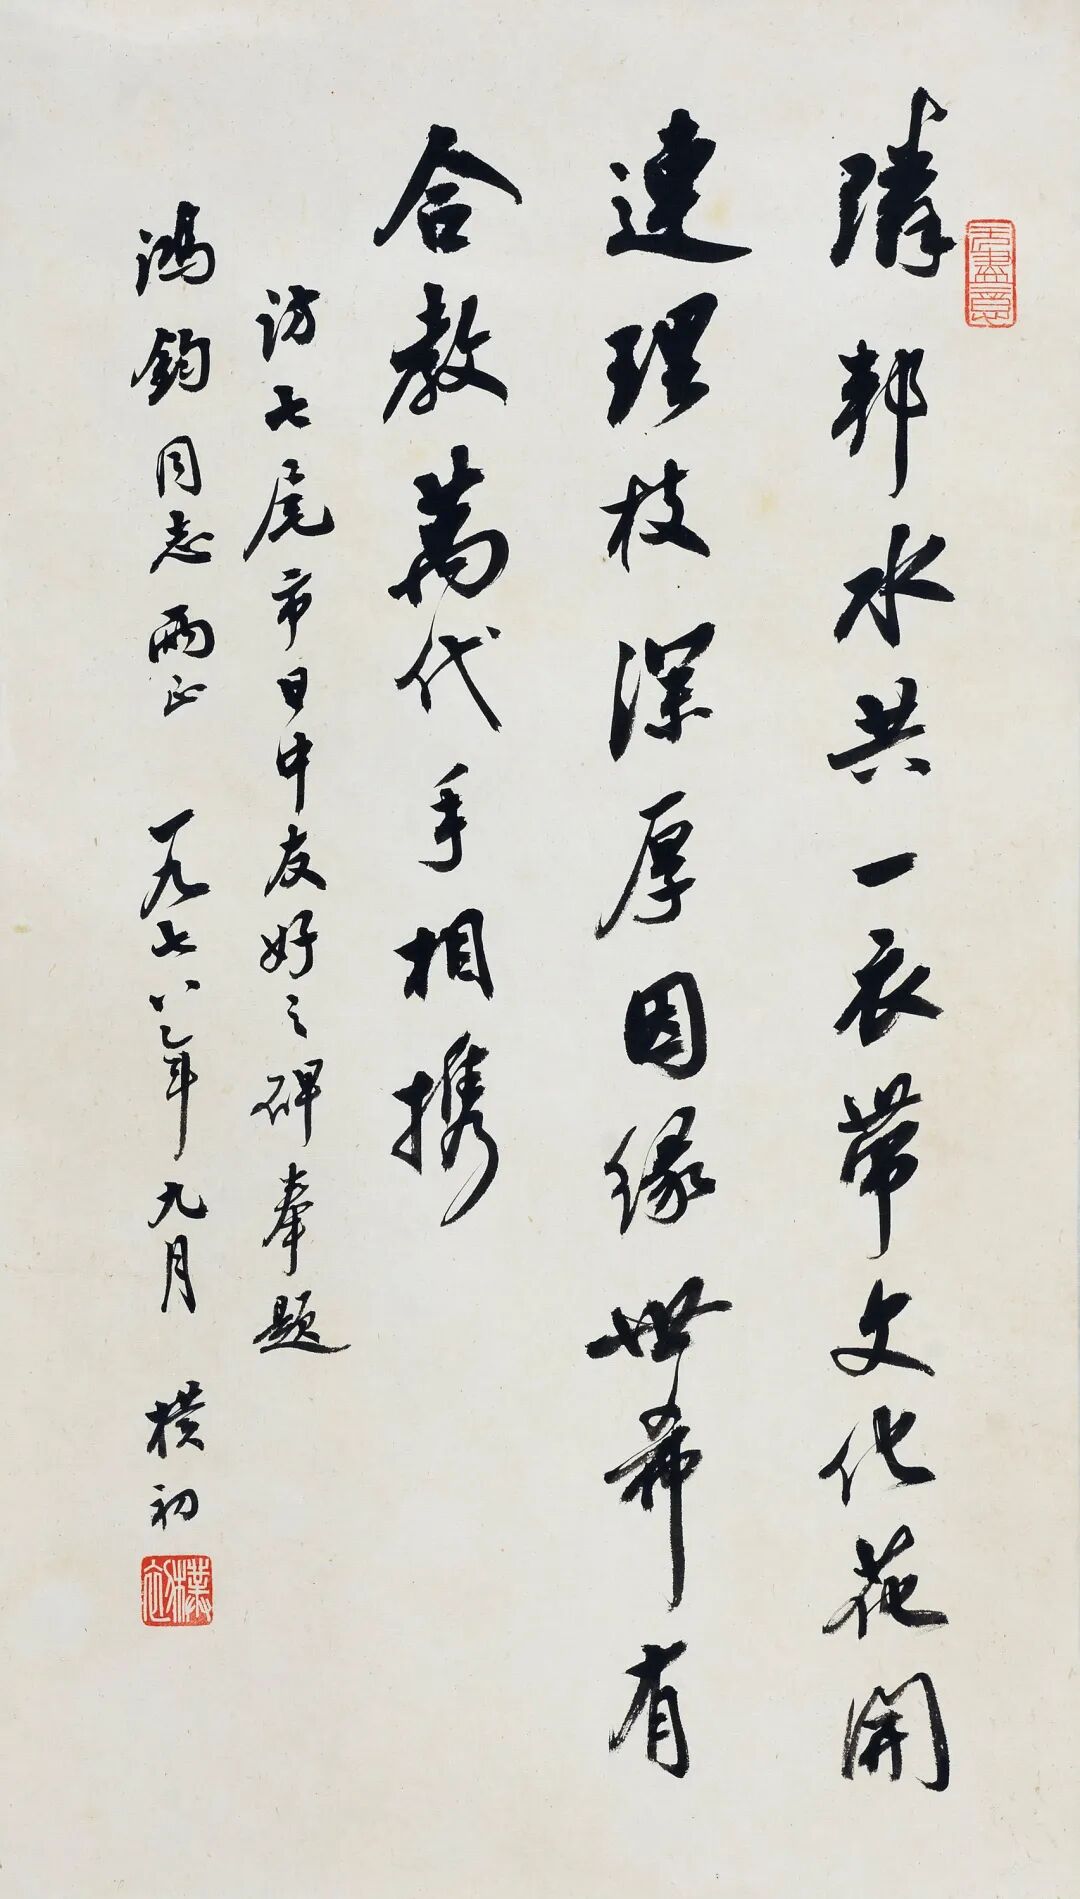 无尽意
隣邦水共一衣带文化花開
連理枝深厚因缘世希有
合教萬代手相携
访七尾市日中友好之碑奉题
鴻鈞同志两正 一九七八年九月 樸初
樸初